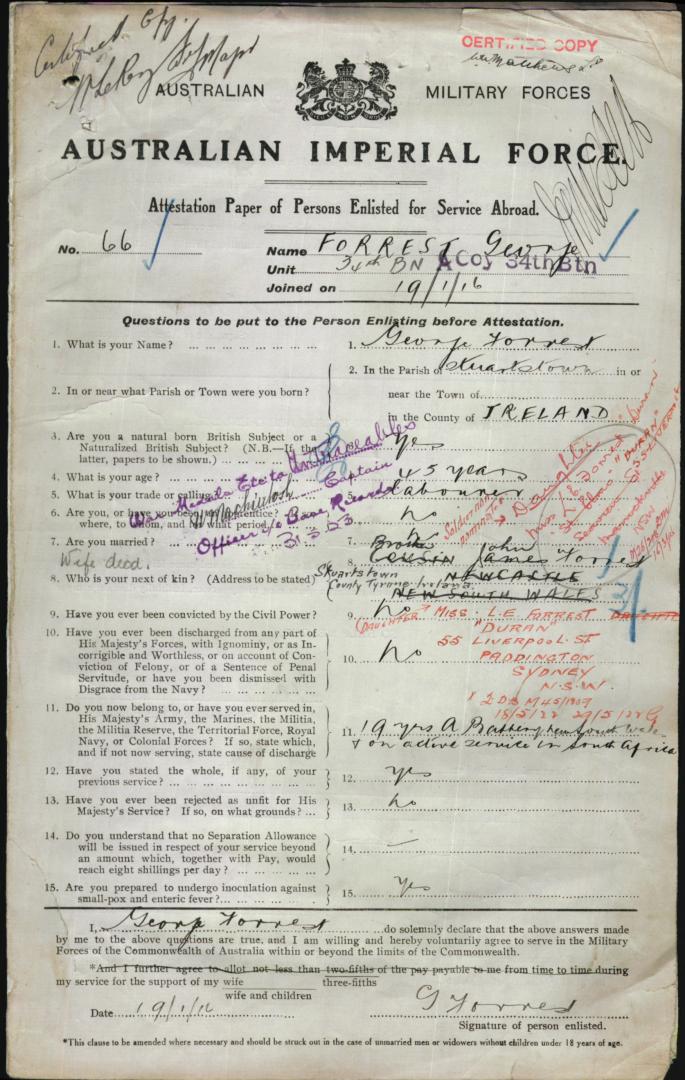 CERTIFIED COPY
AUSTRALIAN MILITARY FORCES
AUSTRALIAN IMPERIAL FORCE.
Attestation Paper of Persons Enlisted for Service Abroad.
No. 66
Name FORREST George
Unit 34th BN A Coy 34th Btn
Joined on 19/1/16
Questions to be put to the Person Enlisting before Attestation.
1. What is your Name? 1. George Forrest
2. In or near what Parish or Town were you born? 2. In the Parish of Stuartstown in or
near the Town of
in the County of IRELAND
3. Are you a natural born British Subject or a
Naturalized British Subject? (N.B.—If the
latter, papers to be shown.) Yes
4. What is your age? 45 years
5. What is your trade or calling? labourer
6. Are you, or have you been, an Apprentice? If so,
where, to whom, and for what period? no
7. Are you married? 7.
Wife dead.
8. Who is your next of kin? (Address to be stated) 8. Brother John
COUSIN James Forrest
Stuartstown NEWCASTLE
County Tyrone Ireland NEW SOUTH WALES
War Medals Etc to Untraceables
Captain
Officer i/c Base Records
31.3.23
Soldier nominated
Daughter
"DURAN"
55 LIVERPOOL ST
NEW
9. Have you ever been convicted by the Civil Power? 9. no
(DAUGHTER) MISS. L.E FORREST
"DURAN"
55 LIVERPOOL. ST
PADDINGTON
SYDNEY
N.S.W.
10. Have you ever been discharged from any part of
His Majesty's Forces, with Ignominy, or as In-
corrigible and Worthless, or on account of Con-
viction of Felony, or of a Sentence of Penal
Servitude, or have you been dismissed with
Disgrace from the Navy? 10. no
11. Do you now belong to, or have you ever served in,
His Majesty's Army, the Marines, the Militia,
the Militia Reserve, the Territorial Force, Royal
Navy, or Colonial Forces? If so, state which,
and if not now serving, state cause of discharge
11. 19 yrs A Battery New South Wales
& on active service in South Africa
12. Have you stated the whole, if any, of your
previous service? 12. yes
13. Have you ever been rejected as unfit for His
Majesty's Service? If so, on what grounds? 13. no
14. Do you understand that no Separation Allowance
will be issued in respect of your service beyond
an amount which, together with Pay, would
reach eight shillings per day? 14. —
15. Are you prepared to undergo inoculation against
small-pox and enteric fever? 15. Yes
I, George Forrest do solemnly declare that the above answers made
by me to the above questions are true, and I am willing and hereby voluntarily agree to serve in the Military
Forces of the Commonwealth of Australia within or beyond the limits of the Commonwealth.
*And I further agree to allot not less than two-fifths of the pay payable to me from time to time during
three-fifths
my service for the support of my wife
wife and children
Date 19/1/16 G Forrest
Signature of person enlisted.
*This clause to be amended where necessary and should be struck out in the case of unmarried men or widowers without children under 18 years of age.